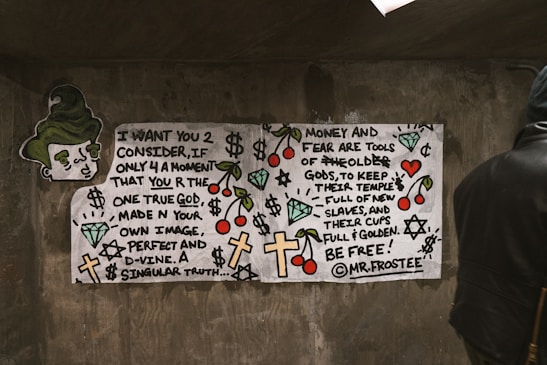 I WANT YOU 2
CONSIDER, IF
ONLY 4 A MOMENT
THAT YOU R THE
ONE TRUE GOD,
MADE N YOUR
OWN IMAGE,
PERFECT AND
D-VINE. A
SINGULAR TRUTH...
MONEY AND
FEAR ARE TOOLS
OF THE OLDER
GODS, TO KEEP
THEIR TEMPLES
FULL OF NEW
SLAVES, AND
THEIR CUPS
FULL & GOLDEN.
BE FREE!
© MR. FROSTEE